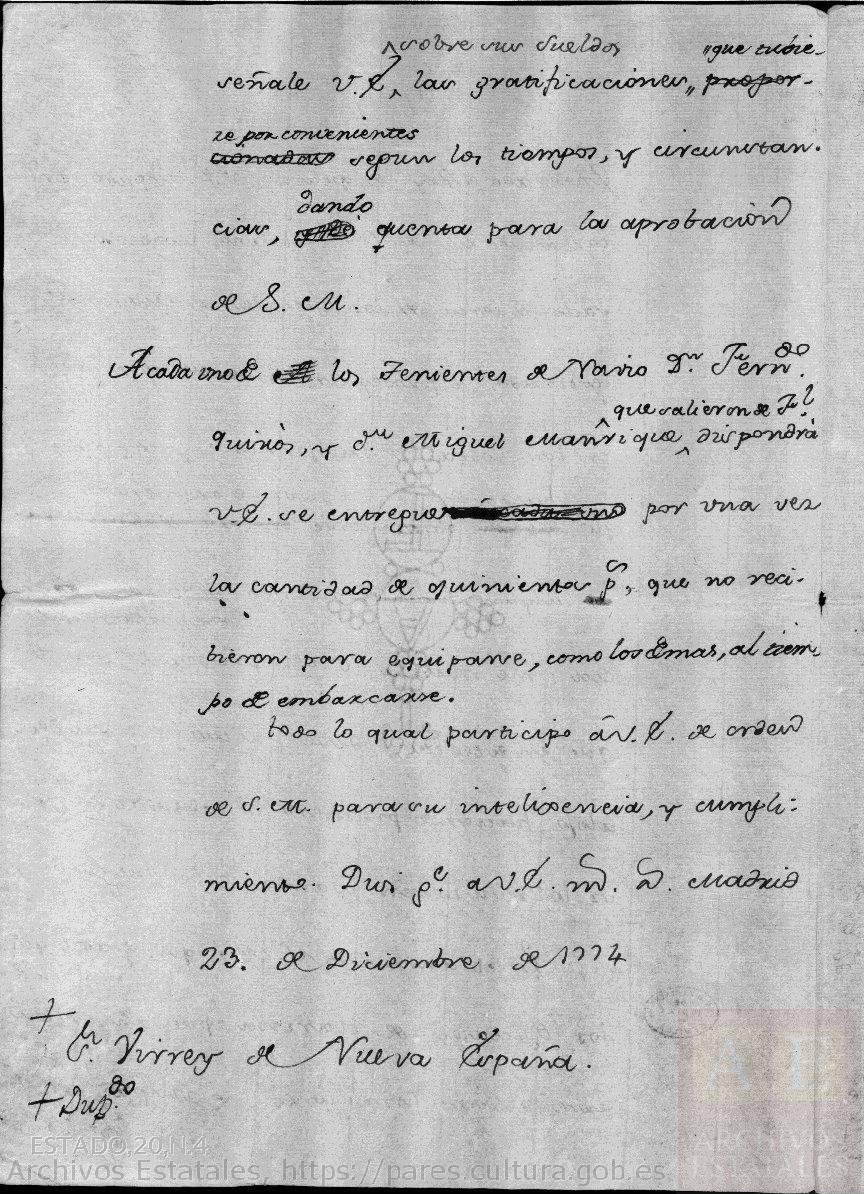 sobre sus sueldos „que tubie-
señale V.E. las gratificaciones„ propor-
re por convenientes
cionadas segun los tiempos, y circunstan-
dando
cias, quenta para la aprobacion
de S. M.
A cada uno de los Tenientes de Navio Dn. Fern.do
que salieron de F.l
Quiròs, y d.n Miguel Manrrique dispondrà
V.E. se entregue cada uno por una vez
la cantidad de quinientos p.s, que no reci-
bieron para equiparse, como los demas, al tiem-
po de embarcarse.
todo lo qual participo à V.E. de orden
de S. M. para su inteligencia, y cumpli-
miento. Dios g.e a V.E. m.s a.s Madrid
23. de Diciembre de 1774
S.r Virrey de Nueva España.
Dup.do
ESTADO,20,N.4
Archivos Estatales, https://pares.cultura.gob.es
AE
ARCHIVOS
ESTATALES